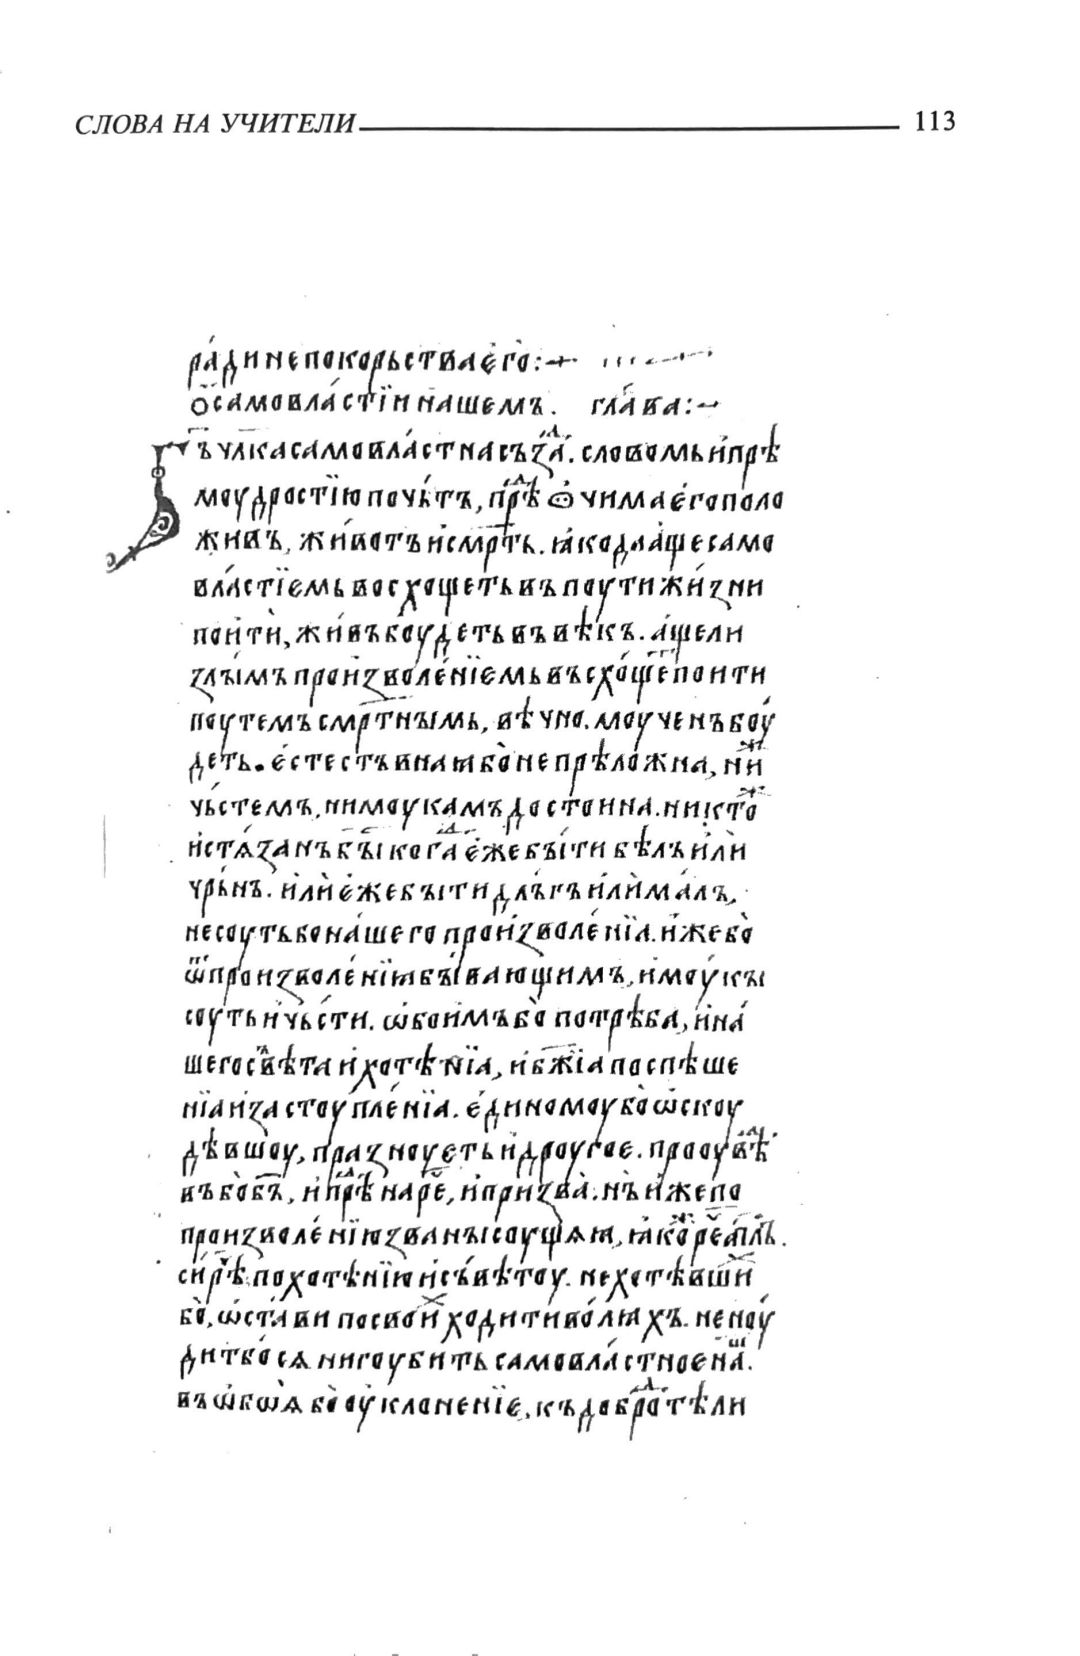 СЛОВА НА УЧИТЕЛИ 113
ра́ди непокорьствїа є҆го̀ :
Ѻ҆ самовла́стїи нашемъ. гла́ва :
Бг҃ъ чл҃ка самовла́стна съзⷣа. словомь и҆ прѣ
моудростїю почьтъ, прѣⷣ ѻчима є҆го поло
живъ, живо́тъ и҆ смр҃ть. ꙗ҆ко да а҆ще само
вла́стїемь восхощеть въ поути жи́зни
поитѝ, жи́въ боудеть въ вѣкъ. а҆ще ли
злы́мъ произволе́нїемь въсхо́щеⷮ поити
поутемъ смр҃тнымь, вѣчно. моученъ боу́
деть. є҆стеств на ꙗ бо̀ непрѣложна, ниⷤ
чьстемъ, ни моукамъ достоина. никтоⷤ
и҆стѧ́занъ бы́ когⷣа є҆же бы́ти бѣлъ и҆лѝ
чрьнъ. и҆лѝ є҆же быти длъ́гъ и҆лѝ ма́лъ,
не соуть бо на́шего произволе́нїа. и҆же бо̀
ѿ произволе́нїꙗ бы́вающимъ, и҆ моу́кы
соуть и҆ чьсти. ѡ҆боимъ бо̀ потрѣба, и҆ на́
шего съвѣта и҆ хотѣнїа, и҆ бж҃їа поспѣше
нїа и҆ застоупле́нїа. є҆диномоу бо̀ ѡ҆скоу
дѣвшоу, празноуеть и҆ дроугое. прооувѣⷣ
въ бо̀ бг҃ъ, и҆ прѣⷣ наре, и҆ призва̀. нъ и҆же по
произволе́нїю званы соущѧꙗ, ꙗ҆коⷤ рече а҆пⷭ҇лъ.
сирѣⷱ, по хотѣнїю и҆ съвѣтоу. не хотѣвшиⷯ
бо̀, ѡ҆ста́ви по своиⷯ ходити во́лꙗхъ. не ноу́
дит бо́ сѧ ни гоубить самовла́стное наⷲ҇.
въ ѡ҆боѧ̀ бо̀ оу҆клоненїе, къ доброⷣтѣли